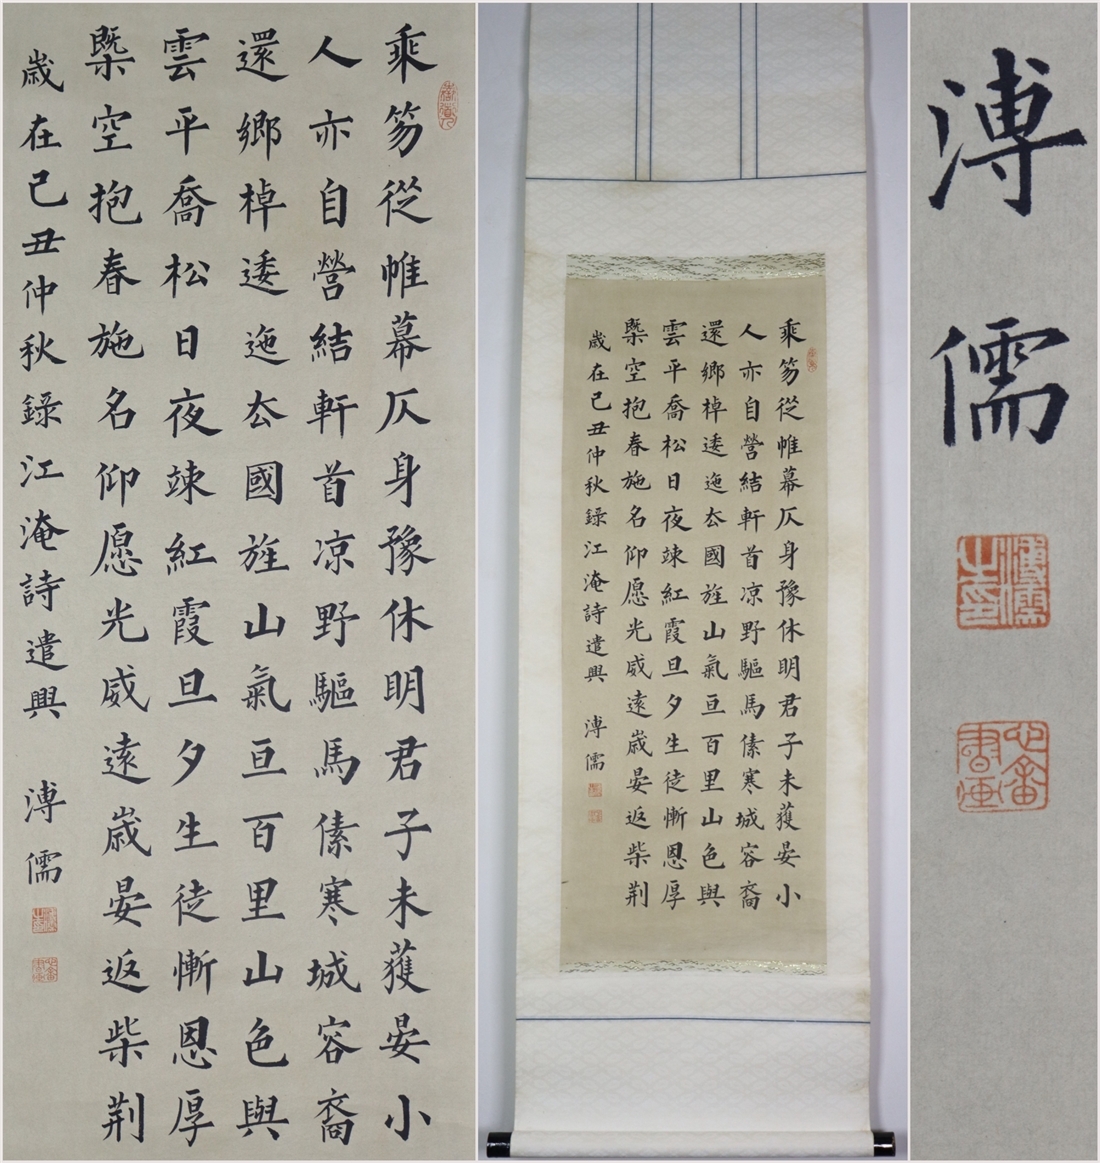 乘笏從帷幕仄身豫休明君子未獲晏小
人亦自營結軒首凉野驅馬傃寒城容裔
還鄉棹逶迤厺國旌山氣亘百里山色與
雲平喬松日夜竦紅霞旦夕生徒慚恩厚
槩空抱春施名仰愿光威遠歲晏返柴荆
歲在己丑仲秋錄江淹詩遣興 溥儒
乘笏從帷幕仄身豫休明君子未獲晏小
人亦自營結軒首凉野驅馬傃寒城容裔
還鄉棹逶迤厺國旌山氣亘百里山色與
雲平喬松日夜竦紅霞旦夕生徒慚恩厚
槩空抱春施名仰愿光威遠歲晏返柴荆
歲在己丑仲秋錄江淹詩遣興 溥儒
溥儒
溥儒之印
心畬書画